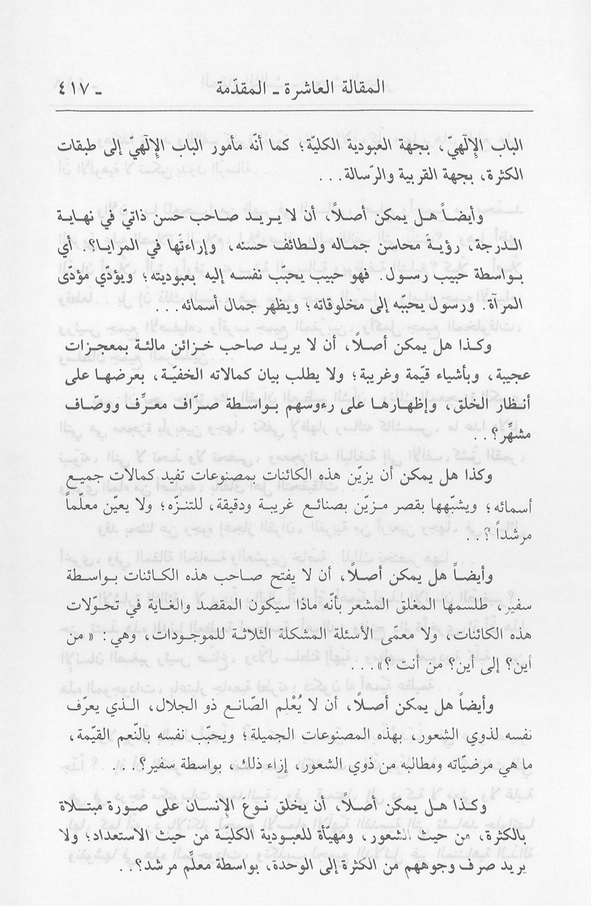 المقالة العاشرة ـ المقدّمة ـ ٤١٧
الباب الإلٓهيّ، بجهة العبودية الكليّة؛ كما أنّه مأمور الباب الإلٓهيّ إلى طبقات
الكثرة، بجهة القربية والرّسالة...
وأيضاً هل يمكن أصلاً، أن لا يريد صاحب حسن ذاتيّ في نهاية
الدرجة، رؤيةَ محاسن جماله ولطائف حسنه، وإراءتَها في المرايا؟. أي
بواسطة حبيب رسول. فهو حبيب يحبّب نفسه إليه بعبوديته؛ ويؤدّي مؤدّى
المرآة. ورسول يحبّبه إلى مخلوقاته؛ ويظهر جمال أسمائه...
وكذا هل يمكن أصلاً، أن لا يريد صاحب خزائن مالئة بمعجزات
عجيبة، وبأشياء قيّمة وغريبة؛ ولا يطلب بيان كمالاته الخفيّة، بعرضها على
أنظار الخلق، وإظهارها على رءوسهم بواسطة صرّاف معرِّف ووصّاف
مشهِّر؟..
وكذا هل يمكن أن يزيّن هذه الكائنات بمصنوعات تفيد كمالات جميع
أسمائه؛ ويشبّهها بقصر مزيّن بصنائع غريبة ودقيقة، للتنزّه؛ ولا يعيّن معلّماً
مرشداً؟...
وأيضاً هل يمكن أصلاً، أن لا يفتح صاحب هذه الكائنات بواسطة
سفير، طلسمها المغلق المشعر بأنّه ماذا سيكون المقصد والغاية في تحوّلات
هذه الكائنات، ولا معمّى الأسئلة المشكلة الثلاثة للموجودات، وهي: « من
أين؟ إلى أين؟ من أنت ؟»...
وأيضاً هل يمكن أصلاً، أن لا يُعْلِم الصّانع ذو الجلال، الذي يعرّف
نفسه لذوي الشعور، بهذه المصنوعات الجميلة؛ ويحبّب نفسه بالنّعم القيّمة،
ما هي مرضيّاته ومطالبه من ذوي الشعور، إزاء ذلك، بواسطة سفير؟...
وكذا هل يمكن أصلاً، أن يخلق نوع الإنسان على صورة مبتلاة
بالكثرة، من حيث الشعور، ومهيّأة للعبودية الكليّة من حيث الاستعداد؛ ولا
يريد صرف وجوههم من الكثرة إلى الوحدة، بواسطة معلّم مرشد؟..